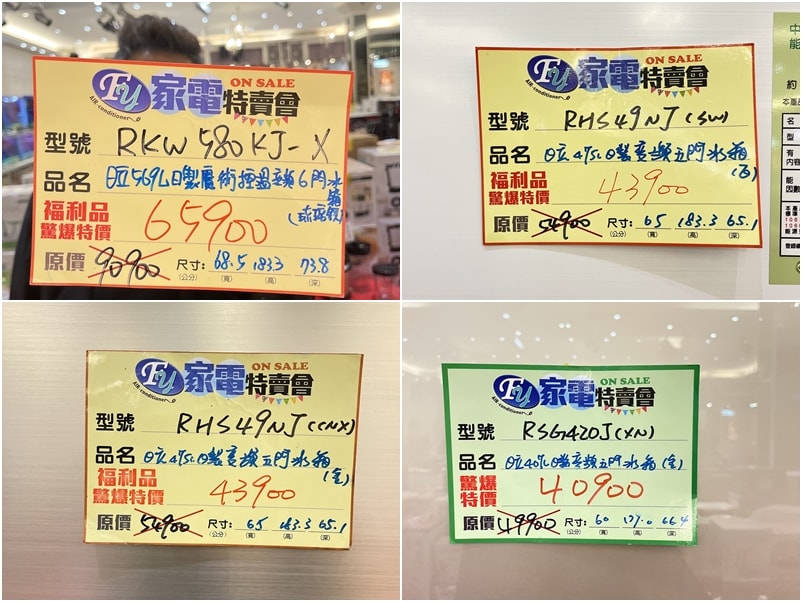 FU 家電特賣會 ON SALE
AIR-conditioner
型號 RKW 580 KJ-X
品名 日立569L日製魔術控溫變頻6門冰箱
(琉璃鏡)
福利品
驚爆特價 65900
原價 90900 尺寸: 68.5 183.3 73.8
(公分) (寬) (高) (深)
FU 家電特賣會 ON SALE
AIR-conditioner
型號 RHS49NJ (SW)
品名 日立475L日製變頻五門冰箱
(白)
福利品
驚爆特價 43900
原價 54900 尺寸: 65 183.3 65.1
(公分) (寬) (高) (深)
中
能
約
本產
名
型
有
內容
能
因數
登錄
FU 家電特賣會 ON SALE
AIR-conditioner
型號 RHS49NJ (CNX)
品名 日立475L日製變頻五門冰箱
(金)
福利品
驚爆特價 43900
原價 54900 尺寸: 65 183.3 65.1
(公分) (寬) (高) (深)
FU 家電特賣會 ON SALE
AIR-conditioner
型號 RSG420J (XN)
品名 日立407L日製變頻五門冰箱(金)
驚爆
特價 40900
原價 49900 尺寸: 60 66.4
(公分) (寬) (高) (深)